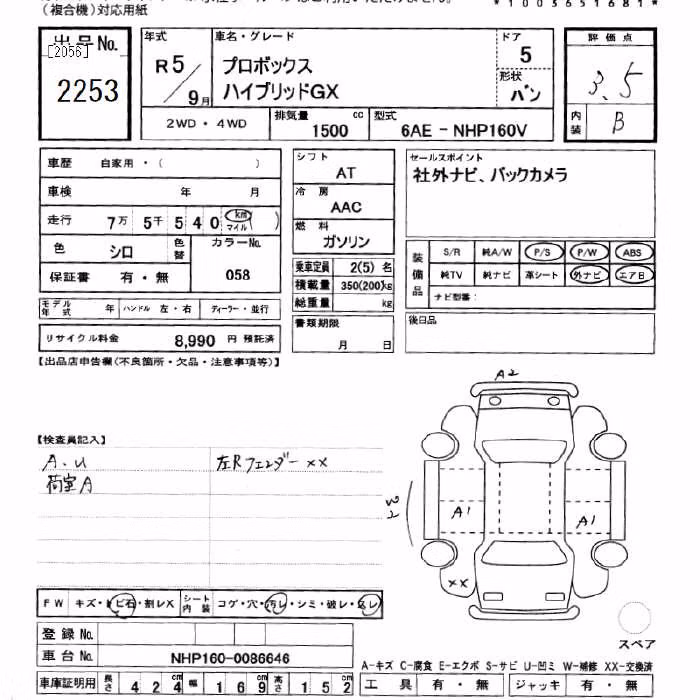 (複合機)対応用紙
*1003651681*
出品No.
[2056]
2253
年式
R5/9月
車名・グレード
プロボックス
ハイブリッドGX
ドア
5
形状
バン
評価点
3.5
内装
B
2WD・4WD
排気量
1500 cc
型式
6AE-NHP160V
車歴 自家用・( )
車検 年 月
走行 7万 5千 5 4 0 km マイル ( )
色 シロ
色替
カラーNo.
058
保証書 有・無
モデル年式 年 ハンドル 左・右 ディーラー・並行
リサイクル料金 8,990 円 預託済
シフト
AT
冷房
AAC
燃料
ガソリン
乗車定員 2(5) 名
積載量 350(200)kg
総重量 kg
書類期限
月 日
セールスポイント
社外ナビ、バックカメラ
装備品
S/R 純A/W P/S P/W ABS
純TV 純ナビ 革シート 外ナビ エアB
ナビ型番:
後日品
【出品店申告欄(不良箇所・欠品・注意事項等)】
【検査員記入】
A.U
荷室A
左Rフェンダー××
A2
A1
A1
××
FW キズ・ビ石・割レX
シート内装 コゲ・穴・汚レ・シミ・破レ・スレ
登録No.
車台No. NHP160-0086646
車庫証明用 長さ 424 cm 幅 169 cm 高さ 152 cm
スペア
A-キズ C-腐食 E-エクボ S-サビ U-凹ミ W-補修 XX-交換済
工具 有・無 ジャッキ 有・無